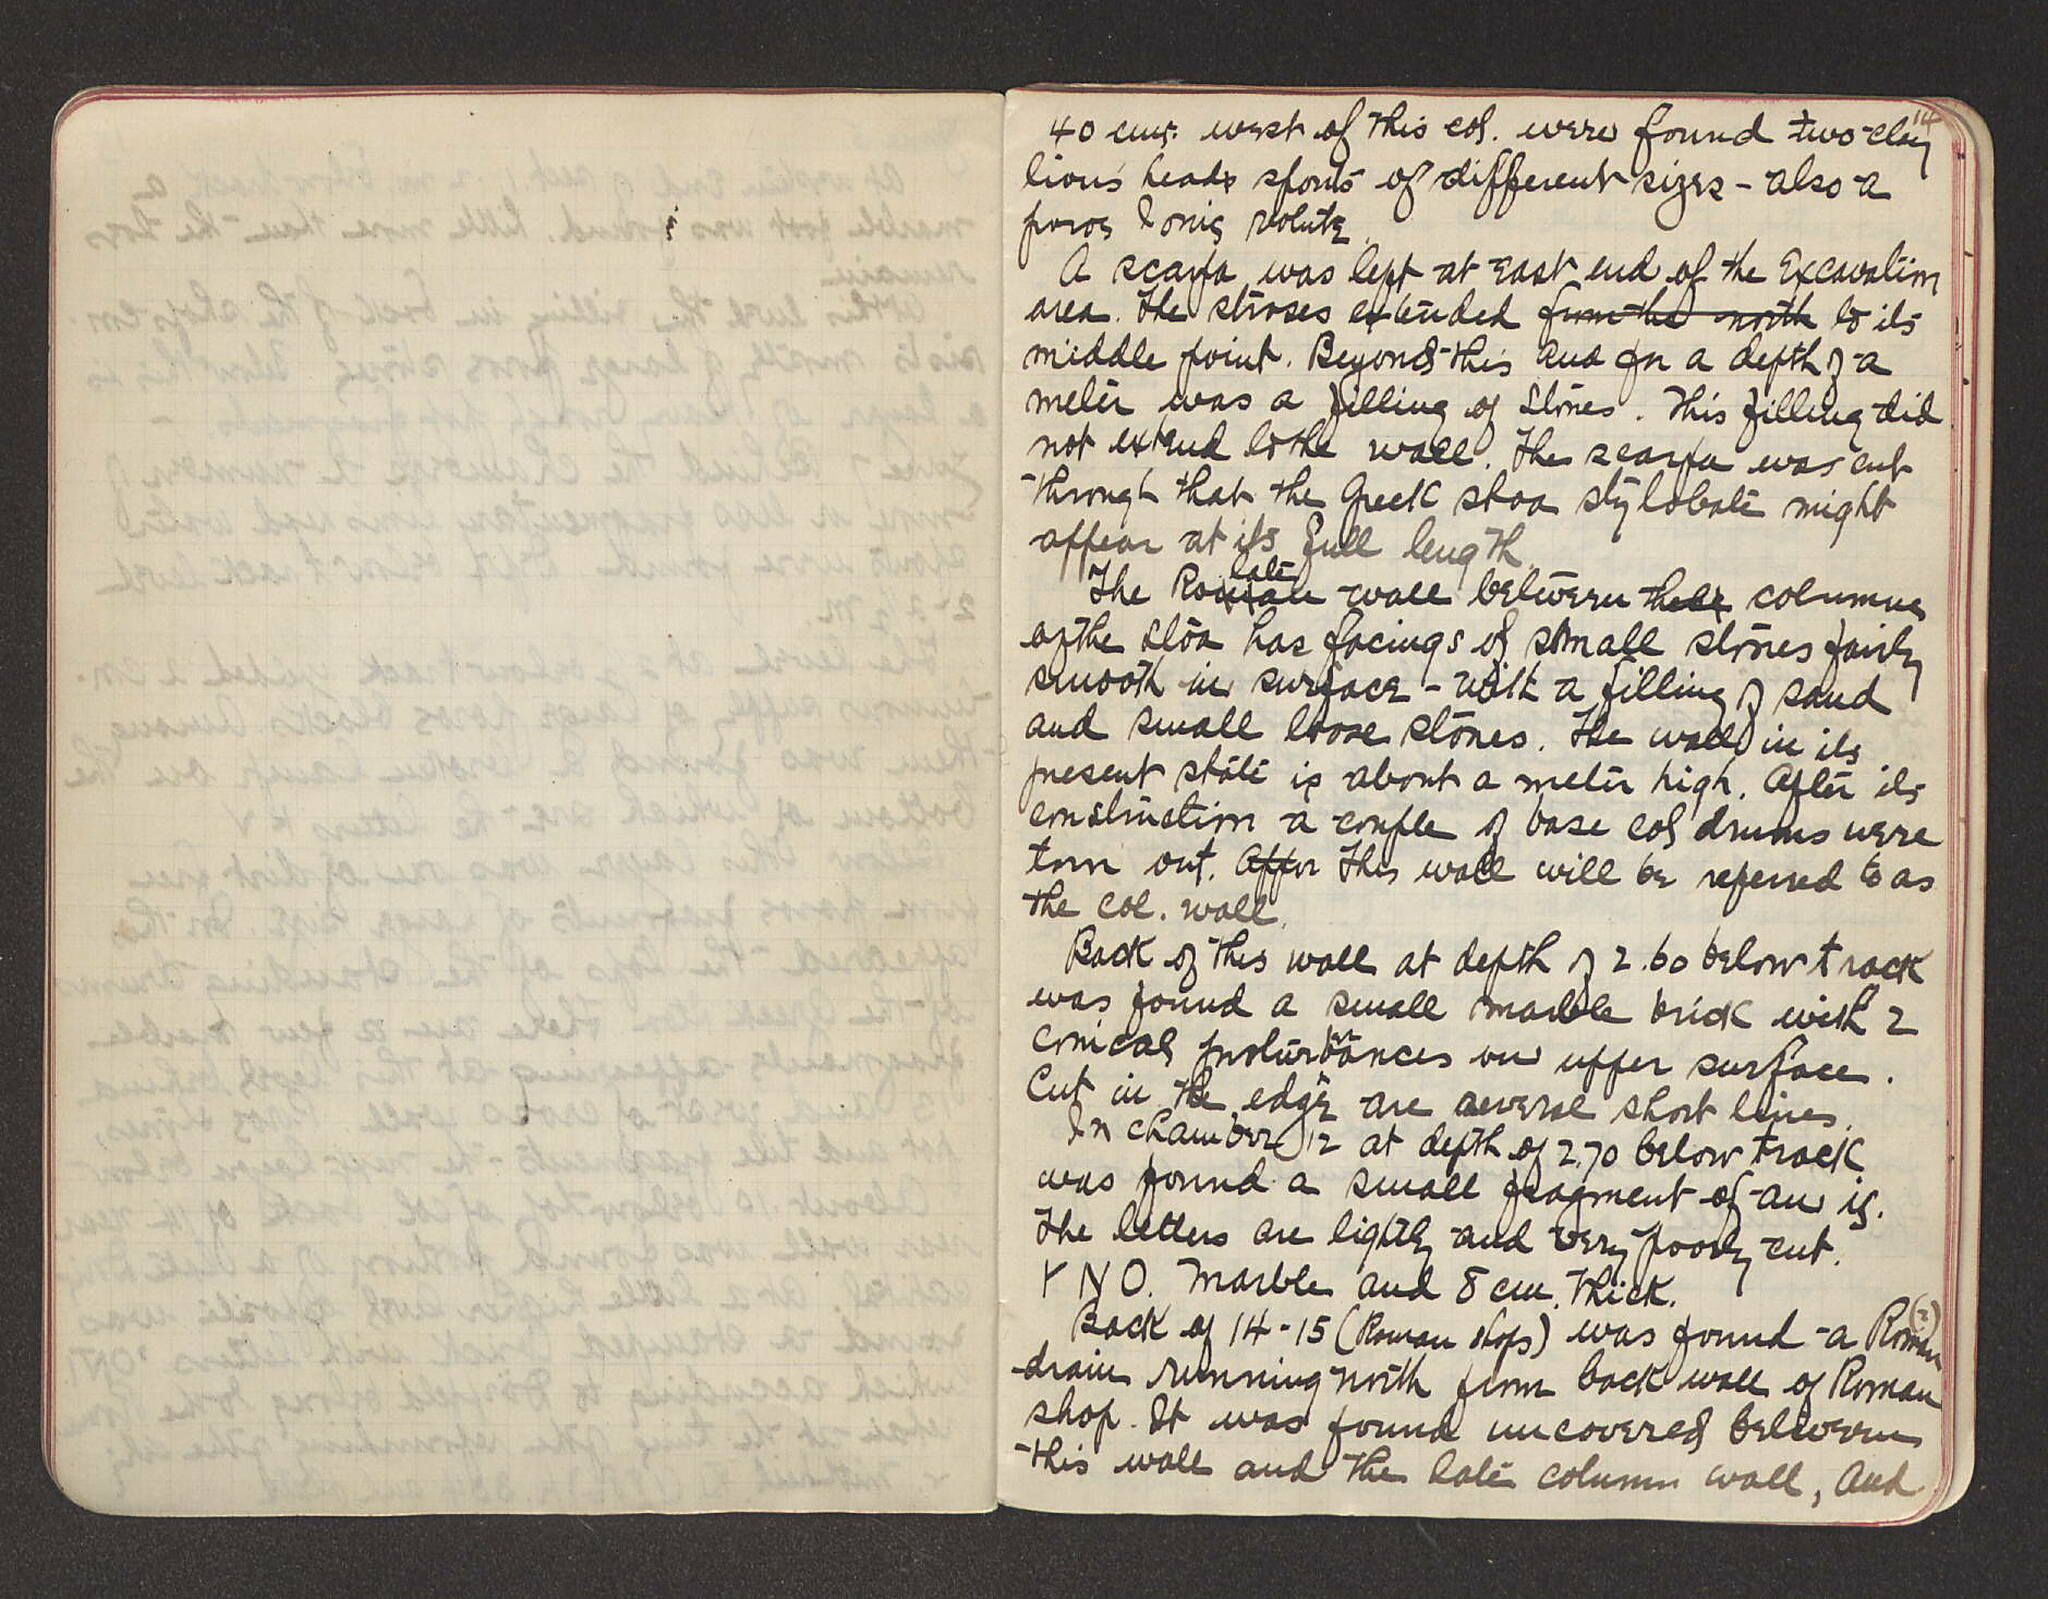 14
40 cms. west of this col. were found two clay
lions heads spouts of different sizes - also a
poros Ionic volute.
A scarpa was left at east end of the Excavation
area. The stroses extended from the north to its
middle point. Beyond this and for a depth of a
meter was a filling of stones. This filling did
not extend to the wall. The scarpa was cut
through that the Greek stoa stylobate might
appear at its full length.
late
The Roman wall between these columns
of the stoa has facings of small stones fairly
smooth in surface - with a filling of sand
and small loose stones. The wall in its
present state is about a meter high. After its
construction a couple of base col drums were
torn out. After This wall will be referred to as
the col. wall.
Back of this wall at depth of 2.60 below track
was found a small marble brick with 2
conical proturbances on upper surface.
Cut in the edge are several short lines.
In chamber 12 at depth of 2.70 below track
was found a small fragment of an is.
The letters are lightly and very poorly cut.
Y N O. Marble and 8 cm. thick.
(?)
Back of 14-15 (Roman shops) was found a Roman
drain running north from back wall of Roman
shop. It was found uncovered between
this wall and the late column wall, and